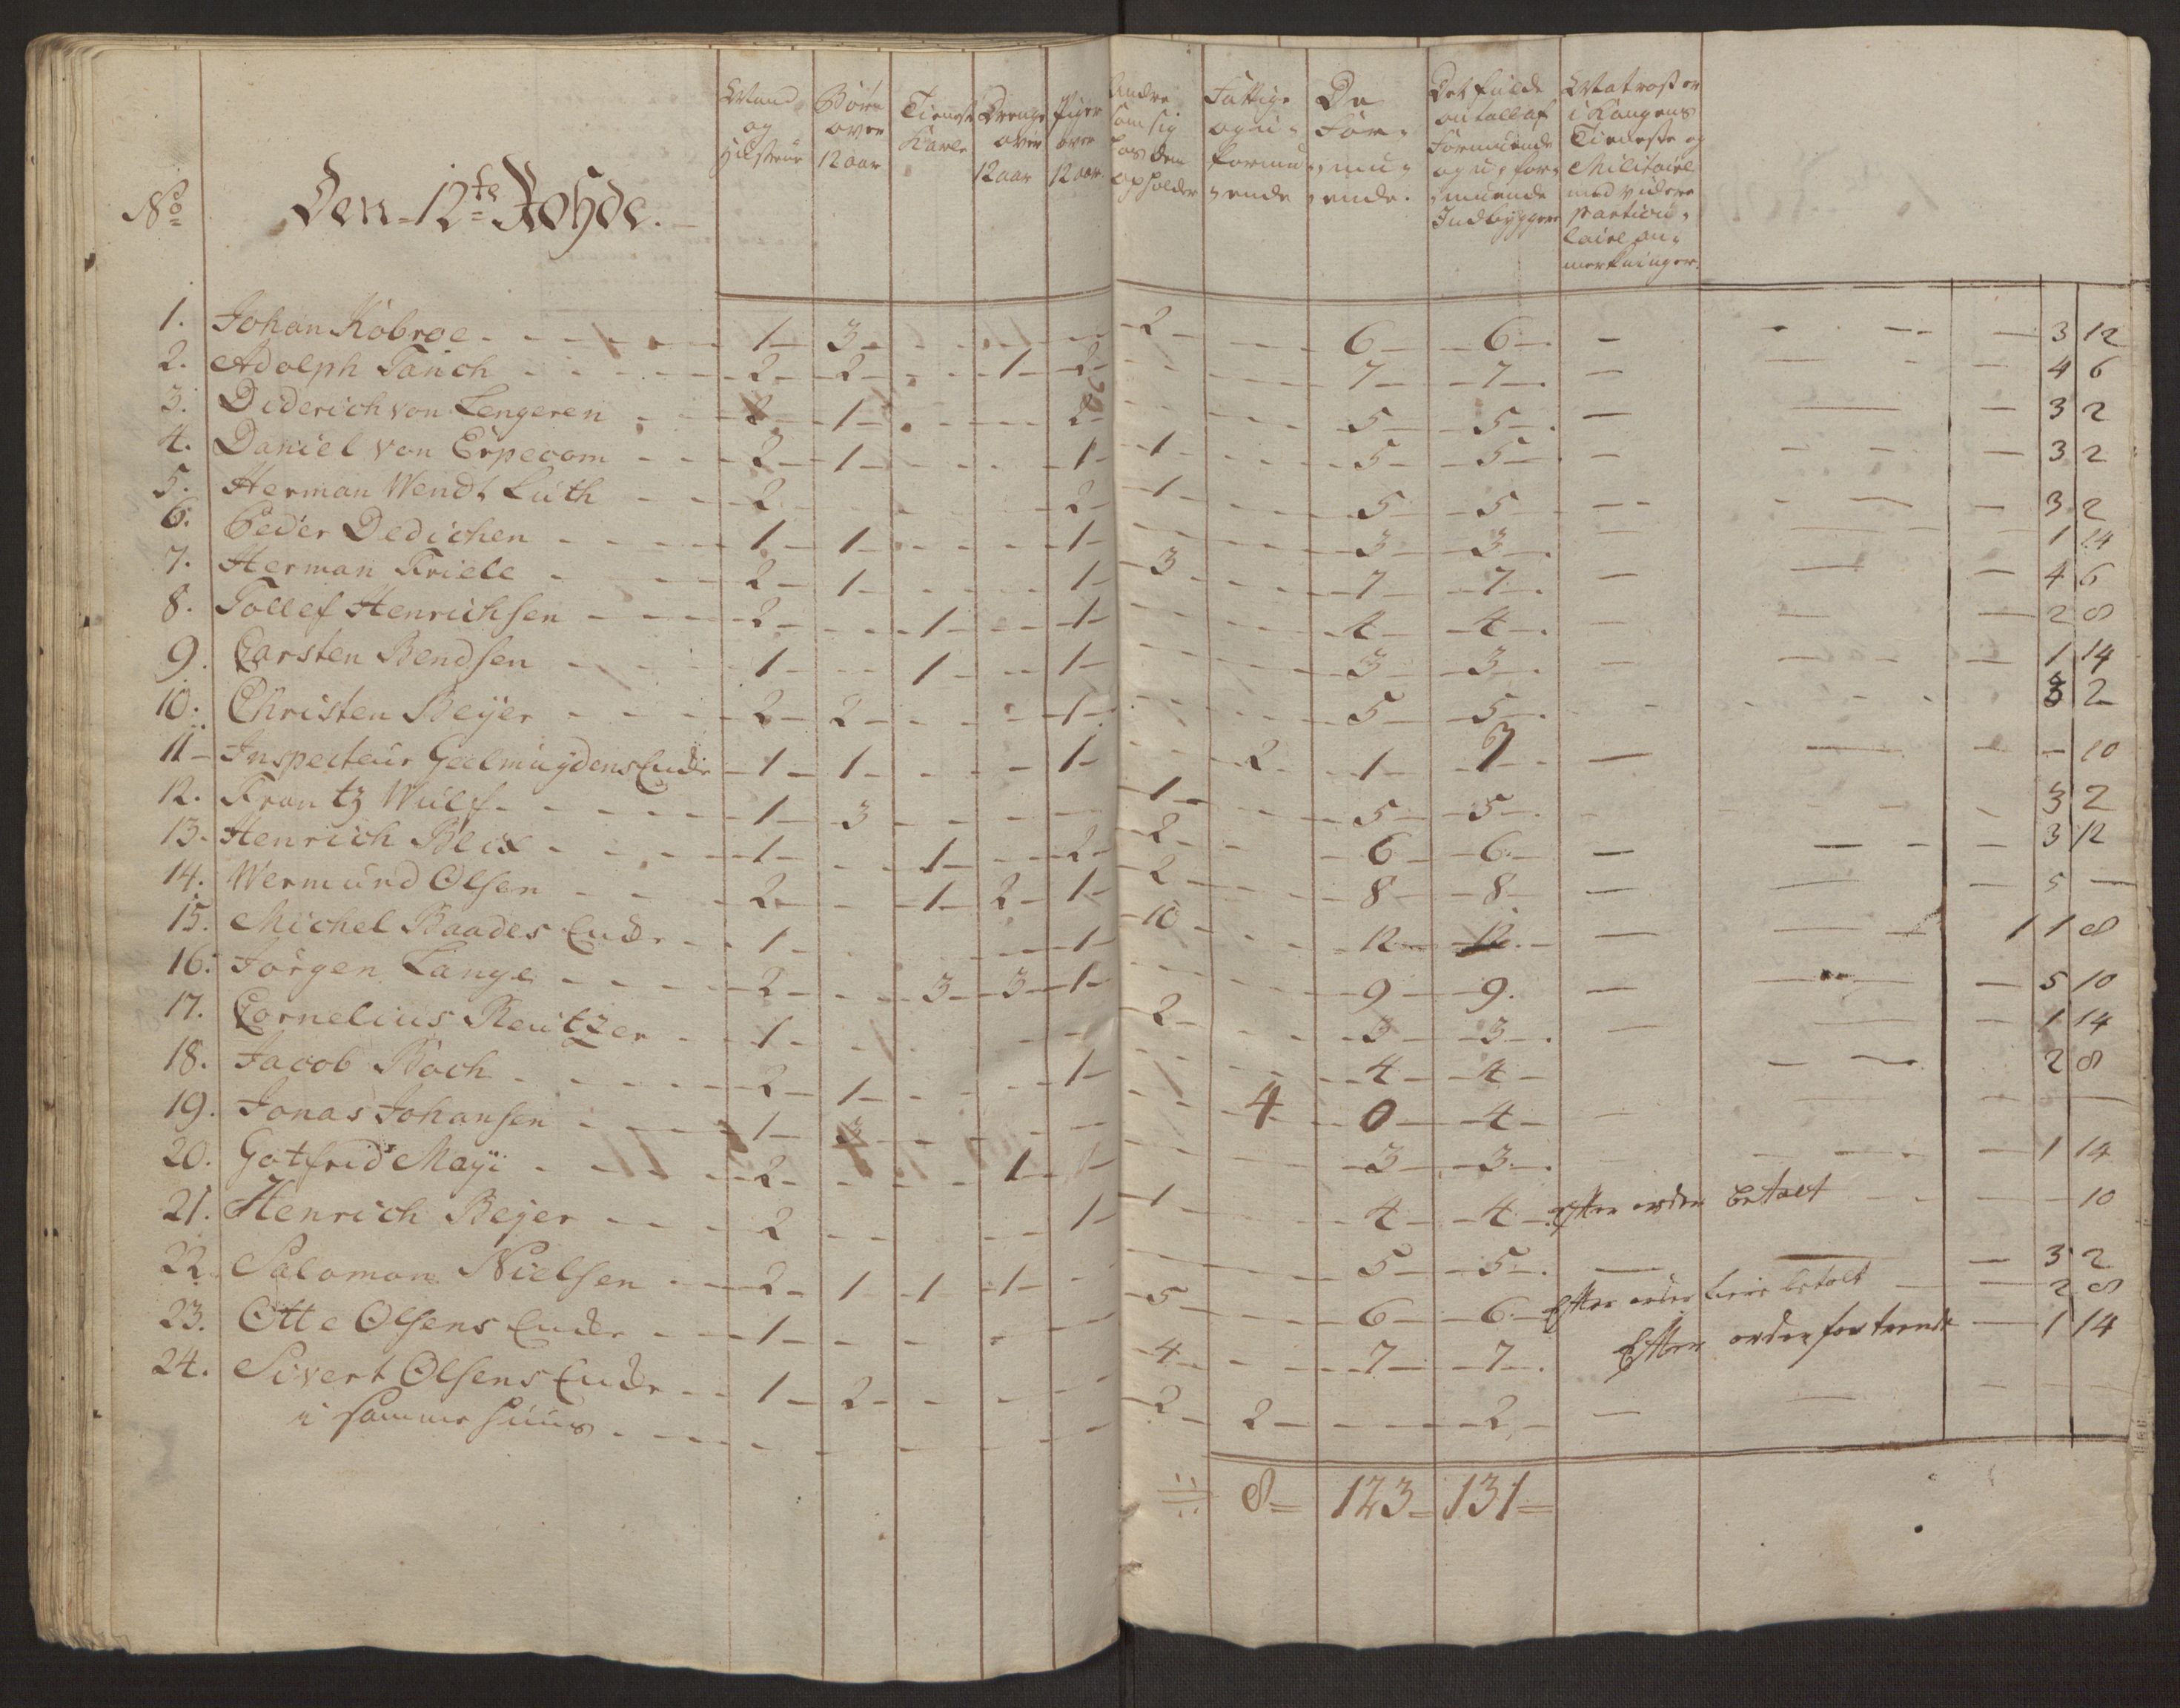 No Den 12te Rohde.
Mand og Hustrue
Börn over 12 aar
Tieneste Karle
Drenge over 12 aar
Piger over 12 aar
Andre som sig hos dem opholder
Fattige og u-formu-ende
De For-mu-ende.
Det fulde antall af Formuende og u-for-muende Indbyggere
Matroser i Kongens Tieneste og Militaire med videre particu-laire an-merkninger.
1. Johan Kobroe 1 3 2 6 6 3 12
2. Adolph Tanch 2 2 1 2 7 7 4 6
3. Diderich von Lengeren 2 1 2 5 5 3 2
4. Daniel von Erpecom 2 1 1 1 5 5 3 2
5. Herman Wendt Luth 2 2 1 5 5 3 2
6. Peder Dedichen 1 1 1 3 3 1 14
7. Herman Friele 2 1 1 3 7 7 4 6
8. Tollef Henrichsen 2 1 1 4 4 2 8
9. Carsten Bendsen 1 1 1 3 3 1 14
10. Christen Beÿer 2 2 1 5 5 3 2
11 Inspecteur Geelmuÿdens Enke 1 1 1 2 1 - 10
12. Frantz Wulf 1 3 1 5 5 3 2
13. Henrich Blix 1 1 2 2 6 6 3 12
14. Wermund Olsen 2 1 2 1 2 8 8 5 -
15. Michel Baades Enke 1 1 10 12 12 11 8
16. Jörgen Lange 2 3 3 1 9 9. 5 10
17. Cornelius Reutzer 1 2 3 3 1 14
18. Jacob Boch 2 1 1 4 4 2 8
19. Jonas Johansen 1 3 4 0 4
20. Gotfrid Maÿi 2 1 3 3 1 14
21. Henrich Beyer 2 1 1 4 4 Efter order betalt 10
22. Salomon Nielsen 2 1 1 1 5 5 3 2
23. Otte Olsens Enke 1 5 6 6 Efter order betalt 2 8
24. Sivert Olsens Enke 1 2 4 7 7 Efter order 1 14
i samme huus 2 2 2
8 123 131